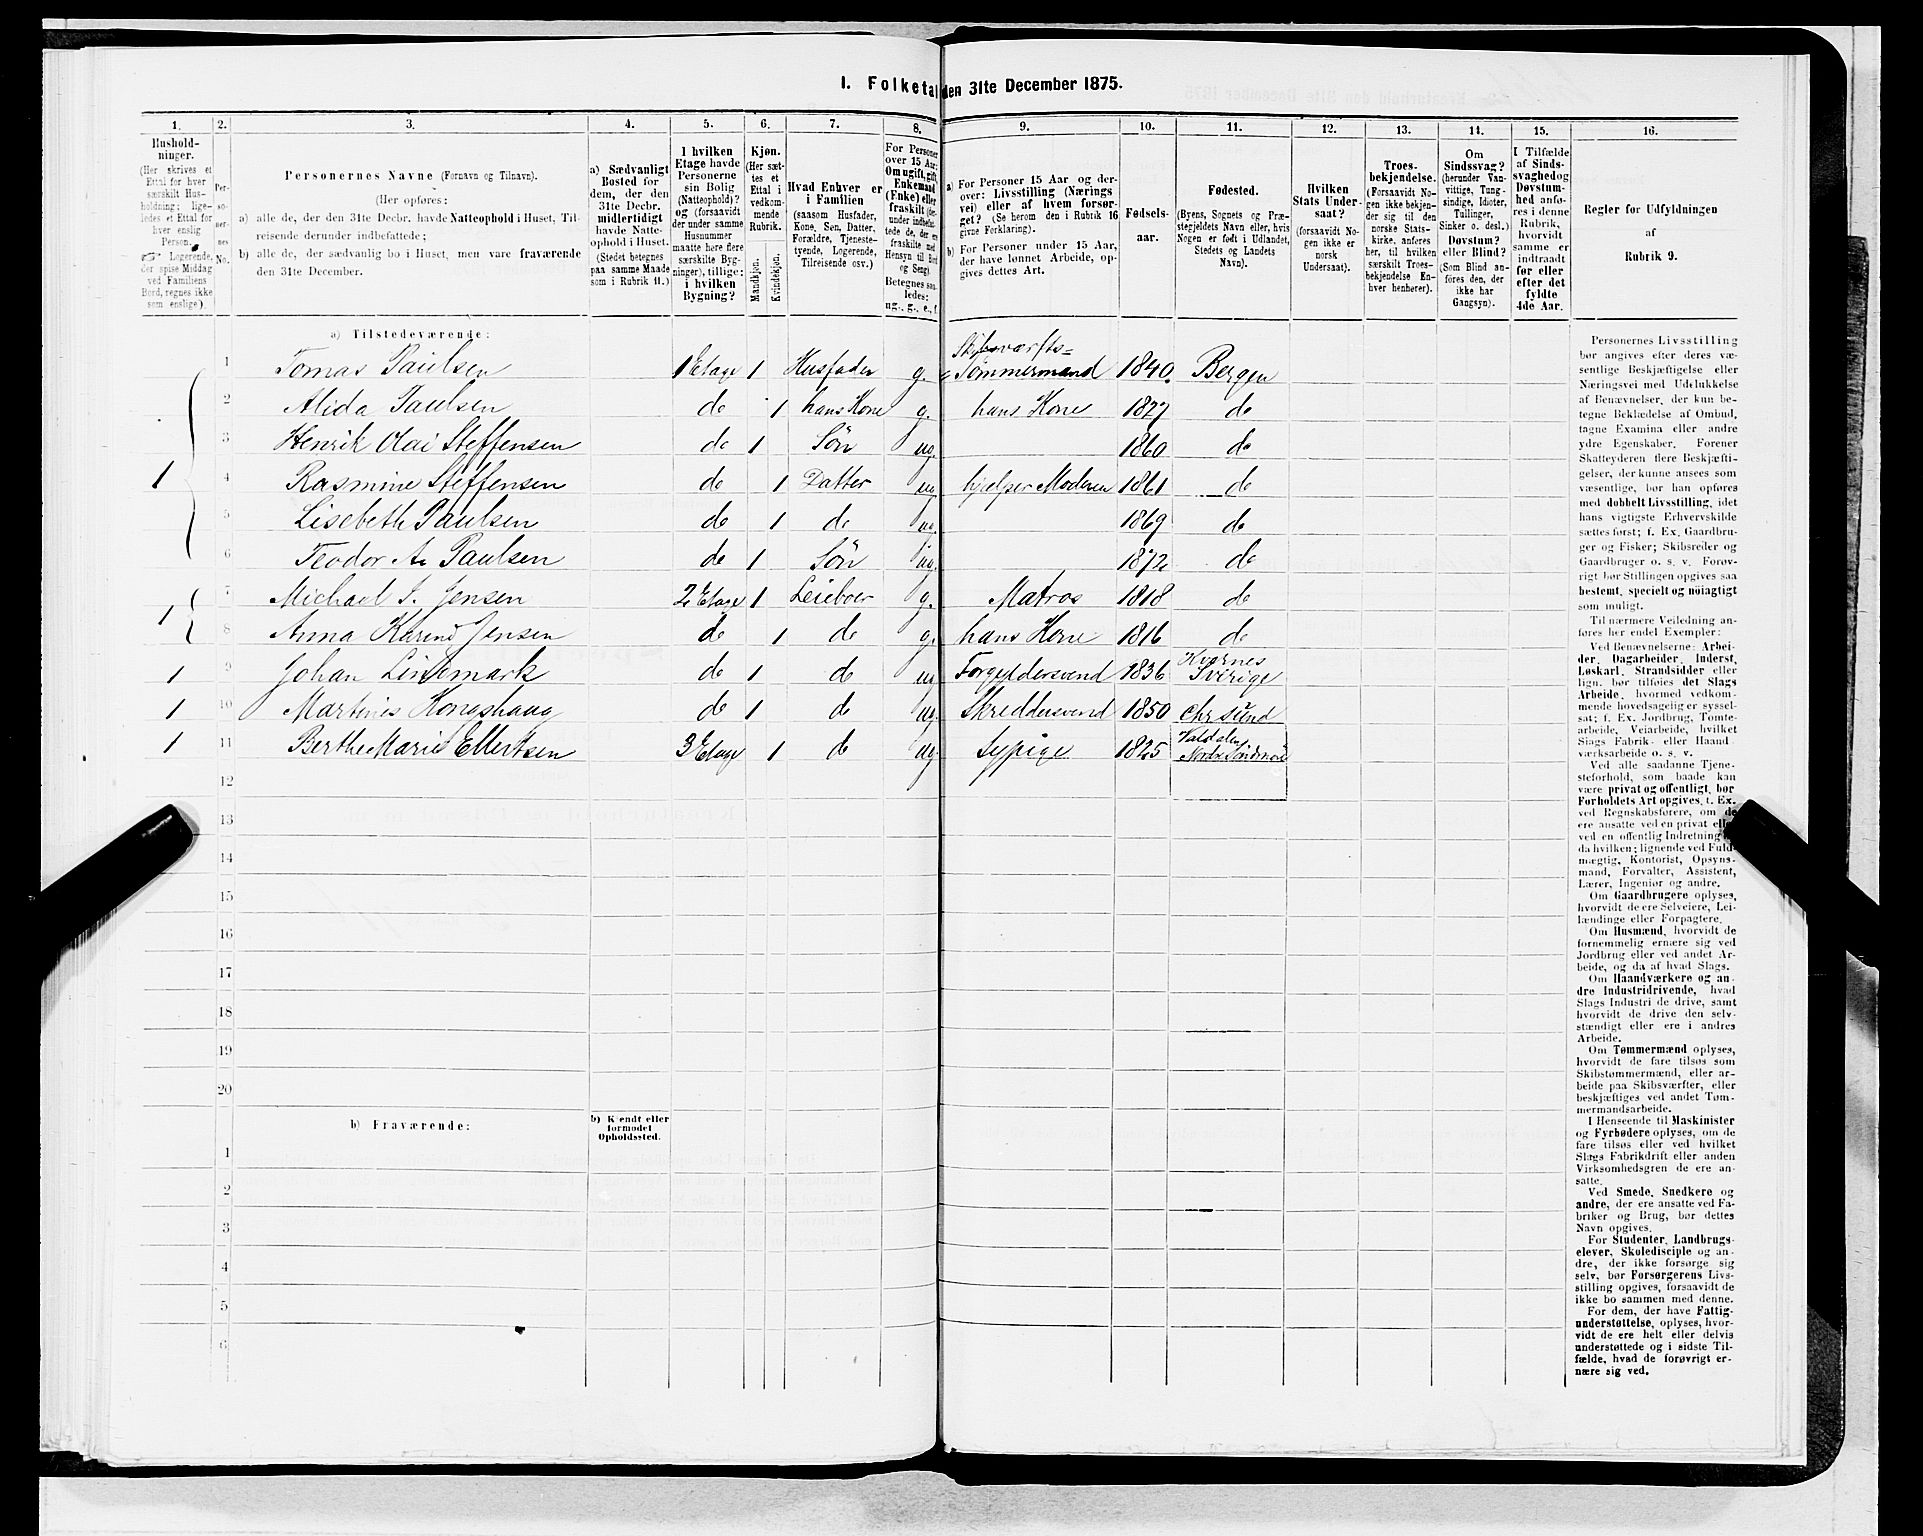 I. Folketal den 31te December 1875.
1.
Hushold-
ninger.
(Her skrives et
Ettal for hver
særskilt Hus-
holdning; lige-
ledes et Ettal for
hver enslig
Person.
☞ Logerende,
der spise Middag
ved Familiens
Bord, regnes ikke
som enslige).
2.
Per-
so-
ner-
nes
No.
3.
Personernes Navne (Fornavn og Tilnavn).
(Her opføres:
a) alle de, der den 31te Decbr. havde Natteophold i Huset, Til-
reisende derunder indbefattede;
b) alle de, der sædvanlig bo i Huset, men vare fraværende
den 31te December.
4.
a) Sædvanligt
Bosted for
dem, der den
31te Decbr.
midlertidigt
havde Natte-
ophold i Huset.
(Stedet betegnes
paa samme Maade
som i Rubrik 11.)
5.
I hvilken
Etage havde
Personerne
sin Bolig
(Natteophold)?
og (forsaavidt
der under samme
Husnummer
maatte høre flere
særskilte Byg-
ninger), tillige:
i hvilken
Bygning?
6.
Kjøn.
(Her sæt-
tes et
Ettal i
vedkom-
mende
Rubrik.
Mandkjøn.
Kvindekjøn.
7.
Hvad Enhver er
i Familien
(saasom Husfader,
Kone, Søn, Datter,
Forældre, Tjeneste-
tyende, Logerende,
Tilreisende osv.)
8.
For Personer
over 15 Aar:
Om ugift, gift,
Enkemand
(Enke) eller
fraskilt (her-
under indbefat-
tede de, der ere
fraskilte med
Hensyn til Bord
og Seng).
Betegnes saa-
ledes:
ug., g., e., f.
9.
a) For Personer 15 Aar og der-
over: Livsstilling (Nærings
vei) eller af hvem forsør-
get? (Se herom den i Rubrik 16
givne Forklaring).
b) For Personer under 15 Aar,
der have lønnet Arbeide, op-
gives dettes Art.
10.
Fødsels-
aar.
11.
Fødested.
(Byens, Sognets og Præ-
stegjeldets Navn eller, hvis
Nogen er født i Udlandet,
Stedets og Landets
Navn).
12.
Hvilken
Stats Under-
saat?
(forsaavidt No-
gen ikke er
norsk
Undersaat).
13.
Troes-
bekjendelse.
(Forsaavidt No-
gen ikke bekjen-
der sig til den
norske Stats-
kirke, anføres
her, til hvilken
særskilt Troes-
bekjendelse En-
hver henhører).
14.
Om
Sindssvag?
(herunder Van-
vittige, Tung-
sindige, Idioter,
Tullinger,
Sinker o. desl.)
Døvstum?
eller Blind?
(Som Blind an-
føres den, der
ikke har
Gangsyn).
15.
I Tilfælde
af Sinds-
svaghed og
Døvstum-
hed anfø-
res i denne
Rubrik,
hvorvidt
samme er
indtraadt
før eller
efter det
fyldte
4de Aar.
16.
Regler for Udfyldningen
af
Rubrik 9.
a) Tilstedeværende:
1 Tomas Paulsen 1 Etage 1 Husfader g. Skibsværfts= Tømmermand 1840. Bergen
2 Alida Paulsen do 1 hans Kone g. hans Kone 1827 do
3 Henrik Olai Steffensen do 1 Søn ug. 1860 do
1 4 Rasmine Steffensen do 1 Datter ug hjælper Moderen 1861 do
5 Lisebeth Paulsen do 1 do ug. 1869 do
6 Teodor A. Paulsen do 1 Søn ug. 1872 do
1 7 Michael S. Jensen 2 Etage 1 Leieboer g. Matros 1818 do
8 Anna Karine Jensen do 1 do g. hans Kone 1816 do
1 9 Johan Lindmark do 1 do ug Forgyldersvend 1836 Sverige
1 10 Martines Kongshaug do 1 do ug. Skreddersvend 1850 Chrsund
1 11 Berthe Marie Ellertsen 3 Etage 1 do ug Sypige 1825 Valdalen Nordre Søndmøre
12
13
14
15
16
17
18
19
20
b) Fraværende:
b) Kjendt eller
formodet
Opholdssted.
1
2
3
4
5
6
Personernes Livsstilling
bør angives efter deres væ-
sentlige Beskjæftigelse eller
Næringsvei med Udelukkelse
af Benævnelser, der kun be-
tegne Beklædelse af Ombud,
tagne Examina eller andre
ydre Egenskaber. Forener
Skatteyderen flere Beskjæfti-
gelser, der kunne ansees som
væsentlige, bør han opføres
med dobbelt Livsstilling, idet
hans vigtigste Erhvervskilde
sættes først; f. Ex. Gaardbru-
ger og Fisker; Skibsreder og
Gaardbruger o. s. v. Forøv-
rigt bør Stillingen opgives saa
bestemt, specielt og nöiagtigt
som muligt.
Til nærmere Veiledning an-
føres her endel Exempler:
Ved Benævnelserne: Arbei-
der, Dagarbeider, Inderst,
Løskarl, Strandsidder eller
lign. bør tilføies det Slags
Arbeide, hvormed vedkom-
mende hovedsagelig er syssel-
sat; f. Ex. Jordbrug, Tomte-
arbeide, Veiarbeide, hvilket
Slags Fabrik- eller Haand-
værksarbeide o. s. v.
Ved alle saadanne Tjene-
steforhold, som baade kan
være privat og offentligt, bør
Forholdets Art opgives, t. Ex.
ved Regnskabsførere, om de
ere ansatte ved en privat eller
ved en offentlig Indretning og
da hvilken; lignende ved Fuld-
mægtig, Kontorist, Opsyns-
mand, Forvalter, Assistent,
Lærer, Ingeniør og andre.
Om Gaardbrugere oplyses,
hvorvidt de ere Selveiere, Lei-
lændinge eller Forpagtere.
Om Husmænd, hvorvidt de
fornemmelig ernære sig ved
Jordbrug eller ved andet Ar-
beide, og da af hvad Slags.
Om Haandværkere og an-
dre Industridrivende, hvad
Slags Industri de drive, samt
hvorvidt de drive den selv-
stændigt eller ere i andres
Arbeide.
Om Tømmermænd oplyses,
hvorvidt de fare tilsøs som
Skibstømmermænd, eller ar-
beide paa Skibsværfter, eller
beskjæftiges ved andet Tøm-
mermandsarbeide.
I Henseende til Maskinister
og Fyrbødere oplyses, om de
fare tilsøs eller ved hvilket
Slags Fabrikdrift eller anden
Virksomhedsgren de ere an-
satte.
Ved Smede, Snedkere og
andre, der ere ansatte ved Fa-
briker og Brug, bør dettes
Navn opgives.
For Studenter, Landbrugs-
elever, Skoledisciple og an-
dre, der ikke forsørge sig
selv, bør Forsørgerens Livs-
stilling opgives, forsaavidt de
ikke bo sammen med denne.
For dem, der have Fattig-
understøttelse, oplyses, hvor-
vidt de ere helt eller delvis
understøttede og i sidste Til-
fælde, hvad de forøvrigt er-
nære sig ved.